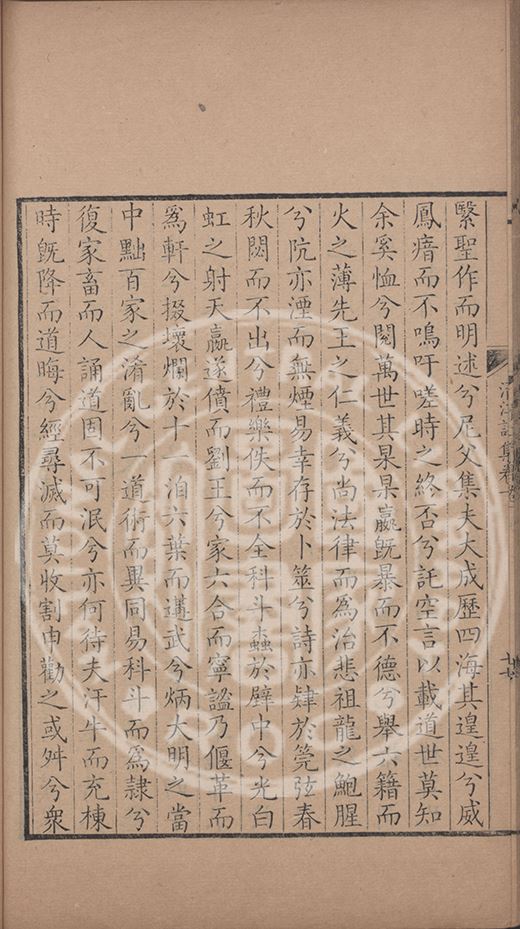 繄聖作而明述兮尼父集夫大成歷四海其遑遑兮威
鳳瘖而不鳴吁嗟時之終否兮託空言以載道世莫知
余奚恤兮閱萬世其杲杲嬴旣暴而不德兮舉六籍而
火之薄先王之仁義兮尚法律而爲治悲祖龍之鮑腥
兮阬亦湮而無煙易幸存於卜筮兮詩亦肄於筦弦春
秋閟而不出兮禮樂佚而不全科斗蟲於壁中兮光白
虹之射天嬴遂僨而劉王兮家六合而寧謐乃偃革而
爲軒兮掇壞爛於十一洎六葉而遘武兮炳大明之當
中黜百家之淆亂兮一道術而異同易科斗而爲隷兮
復家畜而人誦道固不可泯兮亦何待夫汗牛而充棟
時旣降而道晦兮經尋滅而莫收割申勸之或舛兮衆